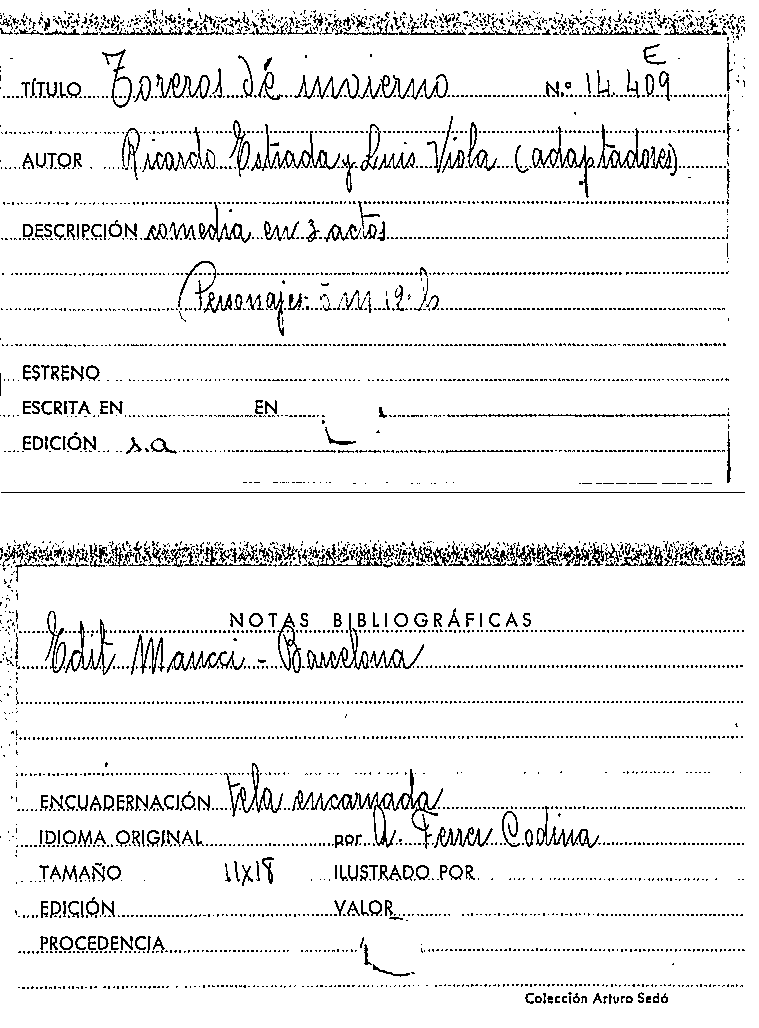 E
TÍTULO Toreros de invierno N.º 14.409
AUTOR Ricardo Estrada y Luis Viola (adaptadores)
DESCRIPCIÓN comedia en 3 actos
(Personajes: 5 m 12 h
ESTRENO
ESCRITA EN EN
EDICIÓN s.a
NOTAS BIBLIOGRÁFICAS
Edit Maucci - Barcelona
ENCUADERNACIÓN tela encarnada
IDIOMA ORIGINAL por A. Ferrer Codina
TAMAÑO 11x18 ILUSTRADO POR
EDICIÓN VALOR
PROCEDENCIA
Colección Arturo Sedó